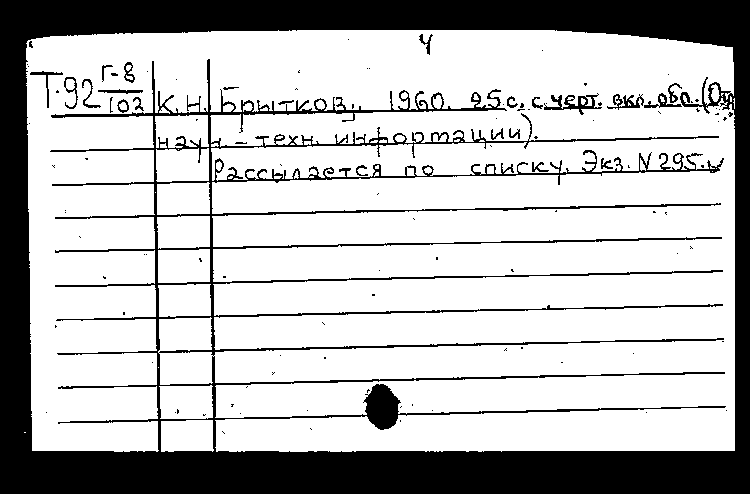 4
Т-92 Г-8/102 К.Н. Брытков,, 1960. 25 с. с черт. вкл. обл. (Отд.
науч.-техн. информации).
Рассылается по списку. Экз. N 295.